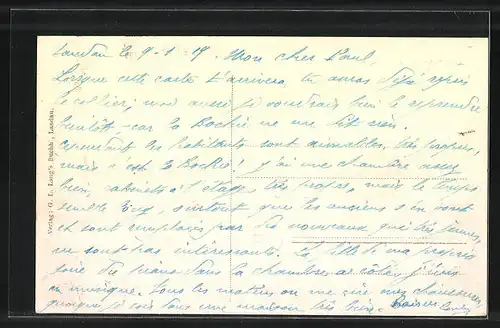 Landau le 9-1-19. Mon cher Paul,
Lorsque cette carte t'arrivera, tu auras déjà repris
le collier, moi aussi je voudrais bien le reprendre
bientôt car la Bochie ne me dit rien.
cependant les habitants sont aimables, très propres,
mais c'est la Bochie! j'ai une chambre assez
bien, cabinets à l'étage, très propre, mais le temps
semble long, surtout que les anciens s'en vont
et sont remplacés par des nouveaux, qui très jeunes,
ne sont pas intéressants. La fille de ma
joue du piano dans la chambre à côté, j'écris
en musique. Tous les matins on me cire mes chaussures
puisque je suis dans une maison très bien. Baisers
Verlag: G. L. Lang's Buchh., Landau.